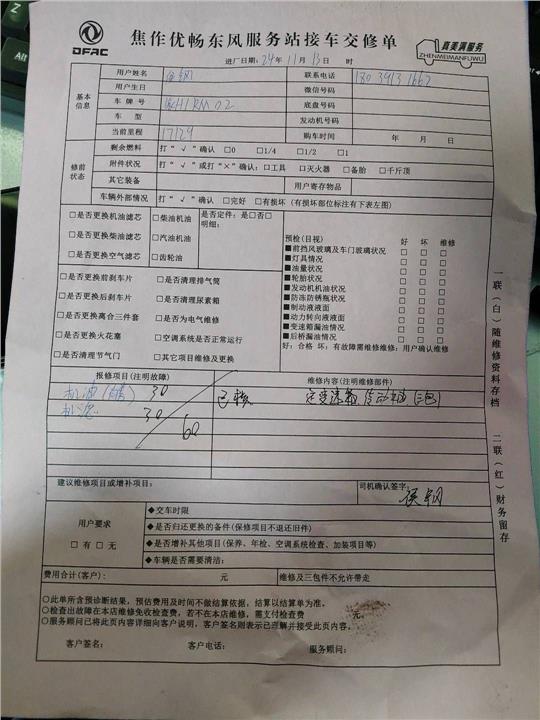 DFAC
焦作优畅东风服务站接车交修单
真美满服务
ZHENMEIMANFUWU
进厂日期：24年11月13日 时
基本信息
用户姓名 联系电话
用户生日 微信号码
车牌号 豫H1RM02 底盘号码
车型 发动机号码
当前里程 17129 购车时间 年 月 日
修前状态
剩余燃料 打“√”确认 □0 □1/4 □1/2 □1
附件状况 打“√”或打“×”确认：□工具 □灭火器 □备胎 □千斤顶
其它装备 用户寄存物品
车辆外部情况 打“√”确认 □完好 □有损坏（有损坏部位标注有下表左图）
□是否更换机油滤芯 □柴油机油 是否定件：是□否□
□是否更换柴油滤芯 □汽油机油 明细：
□是否更换空气滤芯 □齿轮油
□是否更换前刹车片 □是否清理排气筒
□是否更换后刹车片 □是否清理尿素箱
□是否更换离合三件套 □是否为电气维修
□是否更换火花塞 □空调系统是否正常运行
□是否清理节气门 □其它项目维修及更换
预检（目视） 好 坏 维修
■前挡风玻璃及车门玻璃状况 □ □ □
■灯具情况 □ □ □
■油量状况 □ □ □
■轮胎状况 □ □ □
■发动机机油状况 □ □ □
■防冻防锈瓶状况 □ □ □
■制动液液面 □ □ □
■动力转向液液面 □ □ □
■变速箱漏油情况 □ □ □
■后桥漏油情况 □ □ □
好：合格 坏：有故障需维修维修：用户确认维修
报修项目（注明故障） 维修内容（注明维修部件）
机油 30
机滤 30
60
建议维修项目或增补项目： 司机确认签字：
用户要求
□有□无
◆交车时限
◆是否归还更换的备件（保修项目不退还旧件）
◆是否增补其他项目（保养、年检、空调系统检查、加装项目等）
◆车辆是否需要清洁：
费用合计（客户）： 元 维修及三包件不允许带走
○此单所含预诊断结果，预估费用及时间不做结算依据，结算以结算单为准。
○检查出故障在本店维修免收检查费，若不在本店维修，需支付检查费 元。
○服务顾问已将此页内容详细向客户说明，客户签名则表示已理解并接受此页内容。
客户签名： 客户电话： 服务顾问：
一联（白）随维修资料存档
二联（红）财务留存